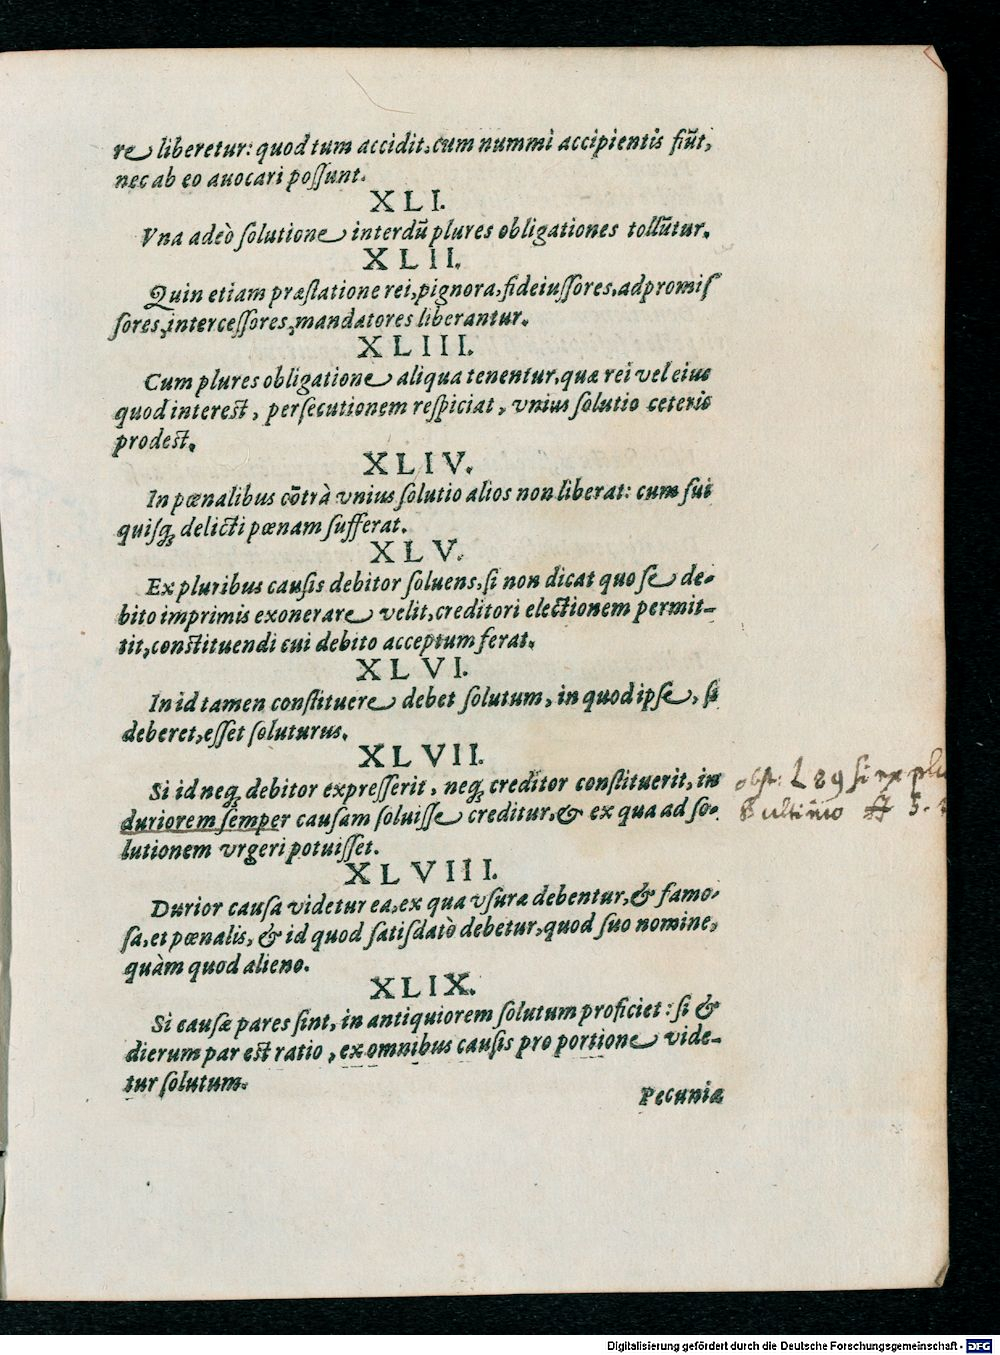 re liberetur: quod tum accidit, cum nummi accipientis fiūt,
nec ab eo avocari possunt.
XLI.
Vna adeò solutione interdū plures obligationes tollūtur.
XLII.
Quin etiam præstatione rei, pignora, fideiussores, adpromis
sores, intercessores, mandatores liberantur.
XLIII.
Cum plures obligatione aliqua tenentur, quæ rei vel eius
quod interest, persecutionem respiciat, vnius solutio ceteris
prodest.
XLIV.
In pœnalibus cōtrà vnius solutio alios non liberat: cum sui
quisq; delicti pœnam sufferat.
XLV.
Ex pluribus causis debitor soluens, si non dicat quo se de-
bito imprimis exonerare velit, creditori electionem permit-
tit, constituendi cui debito acceptum ferat.
XLVI.
In id tamen constituere debet solutum, in quod ipse, si
deberet, esset soluturus.
XLVII.
Si id neq; debitor expresserit, neq; creditor constituerit, in
duriorem semper causam soluisse creditur, & ex qua ad so-
lutionem vrgeri potuisset.
obst: L 89 si ex plu
§ ultimo ff
XLVIII.
Durior causa videtur ea, ex qua vsuræ debentur, & famo-
sa, et pœnalis, & id quod satisdatò debetur, quod suo nomine,
quàm quod alieno.
XLIX.
Si causæ pares sint, in antiquiorem solutum proficiet: si &
dierum par est ratio, ex omnibus causis pro portione vide-
tur solutum.
Pecunia
Digitalisierung gefördert durch die Deutsche Forschungsgemeinschaft - DFG